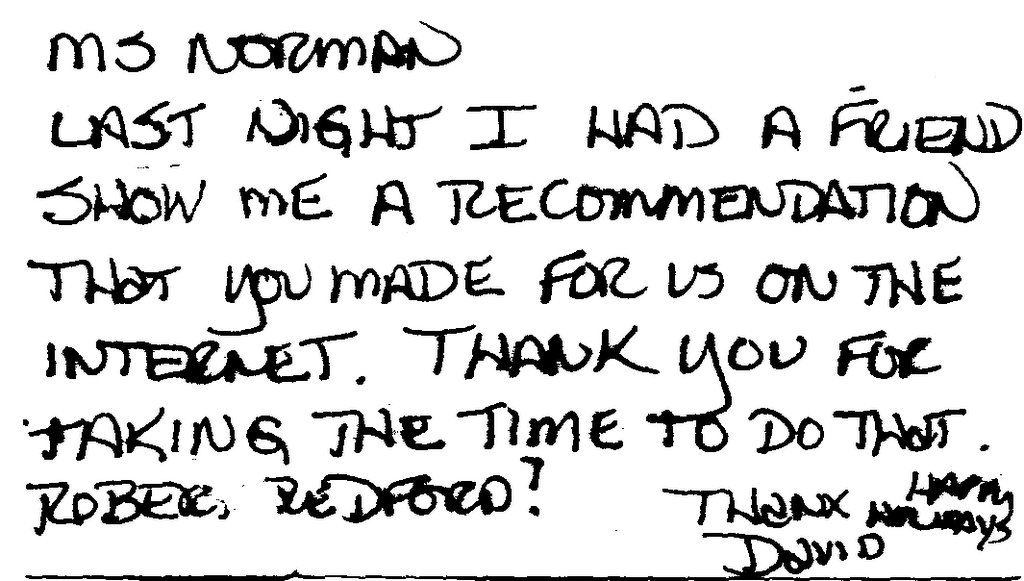 MS NORMAN
LAST NIGHT I HAD A FRIEND
SHOW ME A RECOMMENDATION
THAT YOU MADE FOR US ON THE
INTERNET. THANK YOU FOR
TAKING THE TIME TO DO THAT.
ROBER, REDFORD?
THANX HAPPY
HOLIDAYS
DAVID